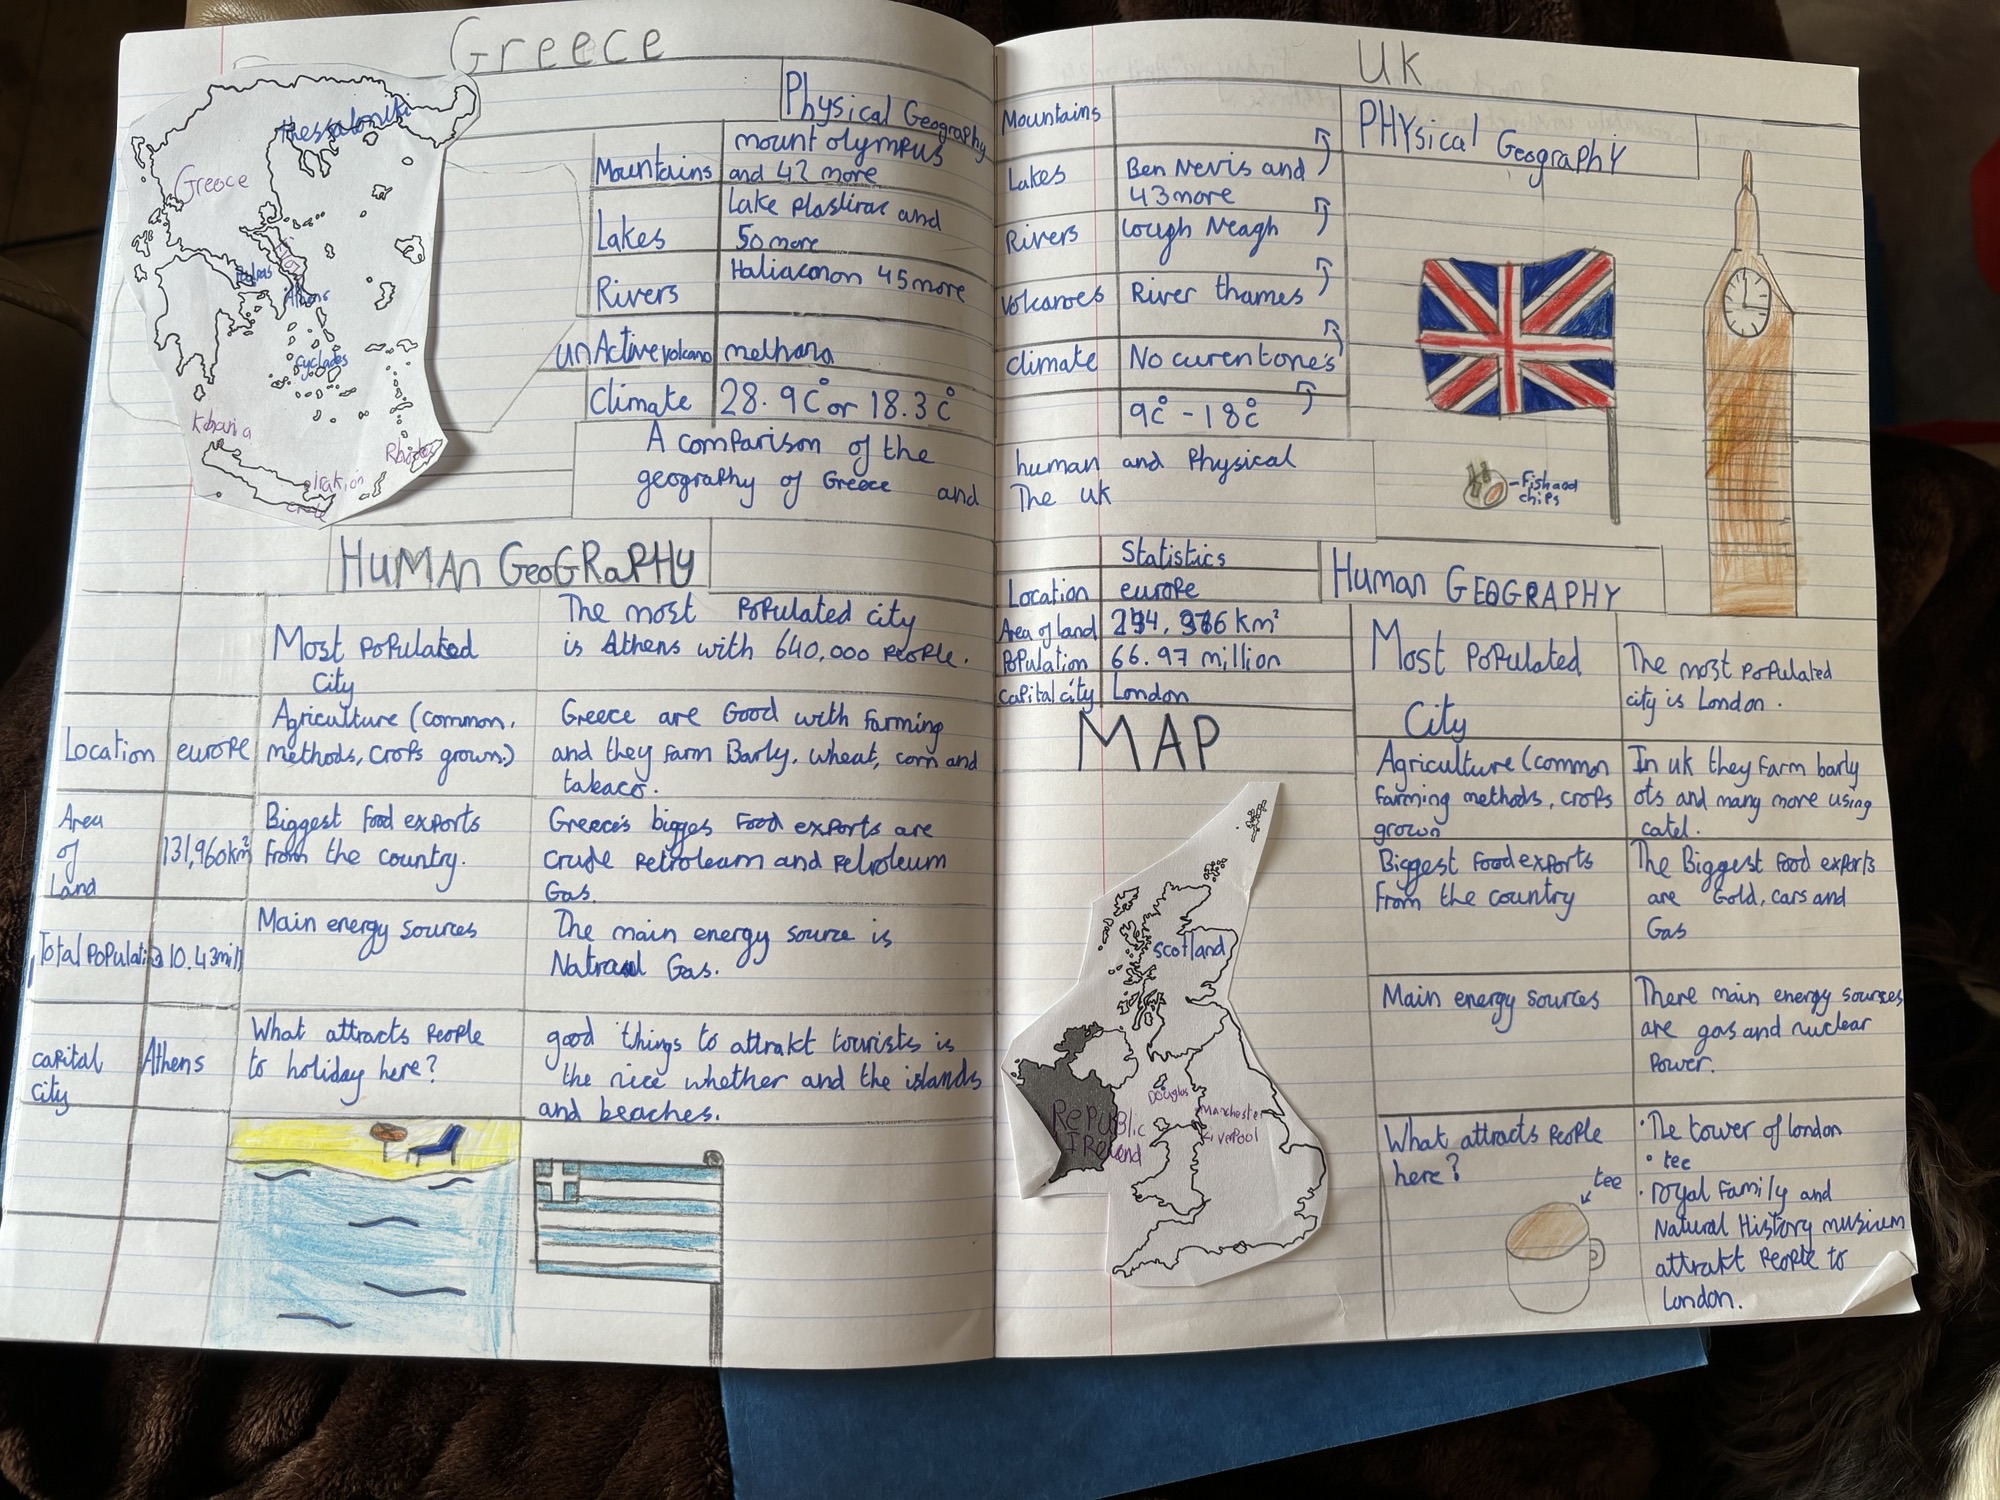 Greece
Thessaloniki
Greece
Patras
Athens
Cyclades
Rhodes
Crete
Physical Geography
Mountains
mount olympus
and 42 more
Lakes
Lake Plastirac and
50 more
Rivers
Haliacmon 45 more
unActive volcano
methana
Climate
28.9C° or 18.3C°
A comparison of the
geography of Greece and
HUMAN GeoGRaPHy
Most populated
City
The most populated city
is Athens with 640,000 people.
Location
europe
Agriculture (common,
methods, crops grown.)
Greece are Good with farming
and they farm Barly, wheat, corn and
tabaco.
Area
of
Land
131,960km²
Biggest food exports
from the country.
Greece's bigges food exports are
crude petroleam and petroleum
Gas.
Total Populati
10.43mill
Main energy sources
The main energy source is
Natraul Gas.
capital
city
Athens
What attracts people
to holiday here?
good things to attrakt tourists is
the nice whether and the islands
and beaches.
UK
Mountains
PHYsical Geography
Lakes
Ben Nevis and
43 more
Rivers
Lough Neagh
Volcanoes
River thames
climate
No curent one's
9C° - 18C°
human and Physical
The uk
- Fish and
chips
Statistics
Location
europe
Area of land
km²
Population
66.97 million
capital city
London
Human GEOGRAPHY
Most Populated
City
The most populated
city is London.
MAP
Scotland
Douglas
Manchester
Liverpool
Republic
Ireland
Agriculture (common
farming methods, crops
grown
In uk they farm barly
ots and many more using
catel.
Biggest food exports
from the country
The Biggest food exports
are Gold, cars and
Gas
Main energy sources
There main energy sources
are gas and nuclear
Power.
What attracts people
here?
tee
• The tower of london
• tee
• royal family and
Natural History musium
attrakt People to
London.